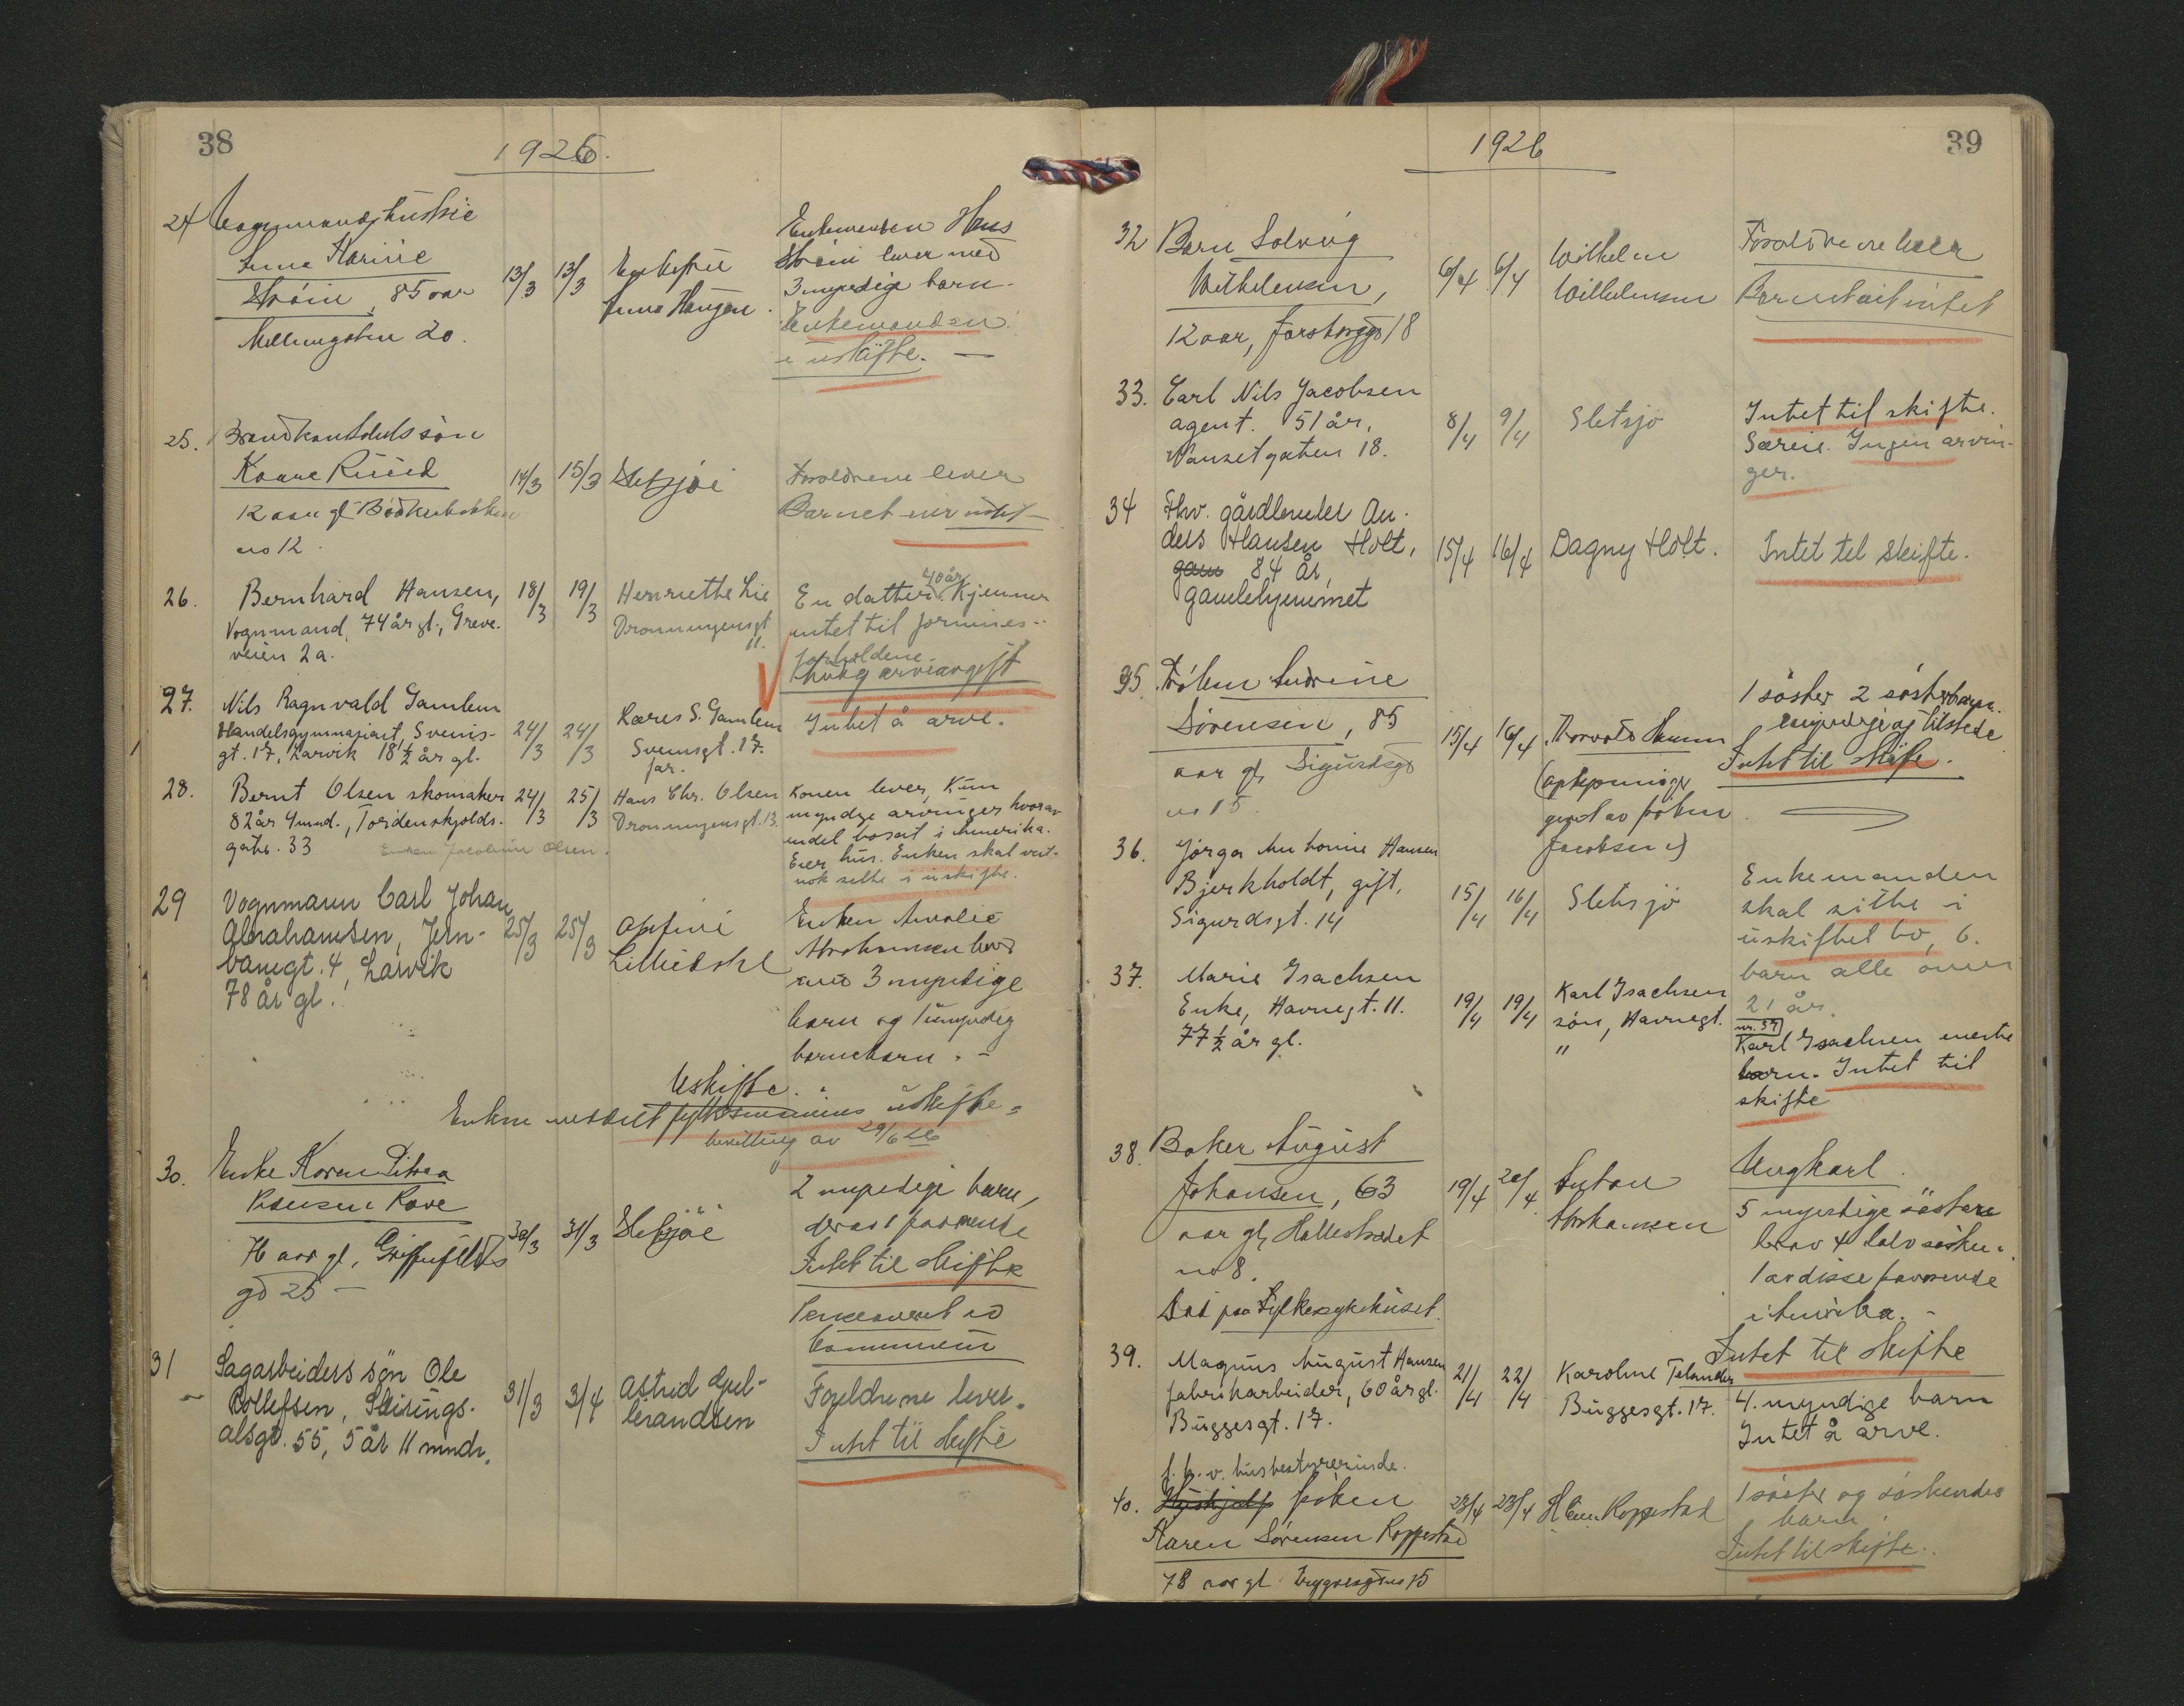 38
1926.
24 Vognmandshustrue
Anna Karine
Strøm, 85 aar
Mellumgaten 20.
13/3 13/3
Enkefru
Anna Haugen.
Enkemanden Hans
Strøm lever med
3 myndige barn.
Enkemanden
i uskifte. —
25.
Kaare Ruud
12 aar gl Bødkerbakken
no 12.
14/3 15/3 Sletsjøe
Forældrene lever
Barnet eier intet
26. Bernhard Hansen,
Vognmand, 74 år gl., Greve-
veien 2a.
18/3 19/3
Henriette Lie
Dronningensgt
11.
40 år
En datter. Kjenner
intet til formues-
forholdene.
arveavgift
27. Nils Ragnvald Gamlem
Handelsgymnasiast, Svens-
gt. 17, Larvik 18 1/2 år gl.
24/3 24/3
Lærer S. Gamlem
Svensgt. 17.
far.
Intet å arve.
28. Bernt Olsen skomaker
82 år 4 mnd., Tordenskjolds-
gate. 33
Enken Jacobine Olsen.
24/3 25/3
Hans Chr. Olsen
Dronningensgt. 13.
Konen lever, Kun
myndge arvinger hvorav
endel bosat i Amerika.
Eier hus. Enken skal vist-
nok sitte i uskifte.
29 Vognmann Carl Johan
Abrahamsen, Jern-
banegt. 4, Larvik
78 år gl.
25/3 25/3
Lilliedahl
Enken Amalie
Abrahamsen lever
med 3 myndige
barn og 1 umyndig
barnebarn. -
Uskifte.
Enken meddelt fylksmannens uskifte=
bevilling av 29/6 26
30. Enke Karen Petrea
76 aar gl, Griffenfeldts
gd 25 —
30/3 31/3 Sletsjøe
2 myndige barn,
derav 1 fraværende
Intet til skifte
kommunen
31 Sagarbeiders søn Ole
Rollefsen, Steirings-
alsgt. 55, 5 år 11 mndr.
31/3 3/4
Astrid Gul-
brandsen
Foreldrene lever.
Intet til skifte
39
1926
32 Barn Solveig
Wilhelmsen,
12 aar, 18
6/4 6/4
Wilhelm
Wilhelmsen
Forældrene lever
Barnet eiet intet
33. Carl Nils Jacobsen
agent. 51 år,
Nansetgaten 18.
8/4 9/4 Sletsjö
Intet til skifte.
Særeie. Ingen arvin-
ger.
34 Fhv. gårdbruker An-
ders Hansen Holt,
gam 84 År,
gamlehjemmet
15/4 16/4 Dagny Holt.
Intet tel skifte.
35. Frøken Andrine
Sørensen, 85
aar gl, Sigurdsgd
no 15.
15/4 16/4 Thorvald Hansen
av frøken
Jacobsen)
1 søster 2 søsterbarn.
myndige og tilstede
Intet til skifte.
36. Jørga Antonie Hansen
Bjerkholdt, gift,
Sigurdsgt. 14
15/4 16/4 Sletsjö
Enkemanden
skal sitte i
uskiftet bo, 6.
barn alle over
21 år.
37. Marie Isachsen
Enke, Havnegt. 11.
77 1/2 år gl.
19/4 19/4
Karl Isachsen
søn, Havnegt.
11
nr. 37
Karl Isachsen eneste
barn. Intet til
skifte
38. Baker August
Johansen, 63
aar gl, Hallestrædet
no 8.
Død paa Fylkessykehuset.
19/4 20/4.
Anton
Abrahamsen
Ungkarl.
5 myndige søskene
herav 4 halvsøsken.
1 av disse fraværende
i Amerika. -
Intet til skifte
39. Magnus August Hansen
fabrikarbeider, 60 år gl.
Buggesgt. 17.
21/4 22/4
Karoline Telander
Buggesgt. 17.
4. myndige barn
Intet å arve.
40. f. h. v. husbestyrerinde.
Hushjælp frøken
Karen Sørensen Roppestad
78 aar gl
23/4 23/4 Roppestad
1 søster og søskendes
barn.
Intet til skifte.